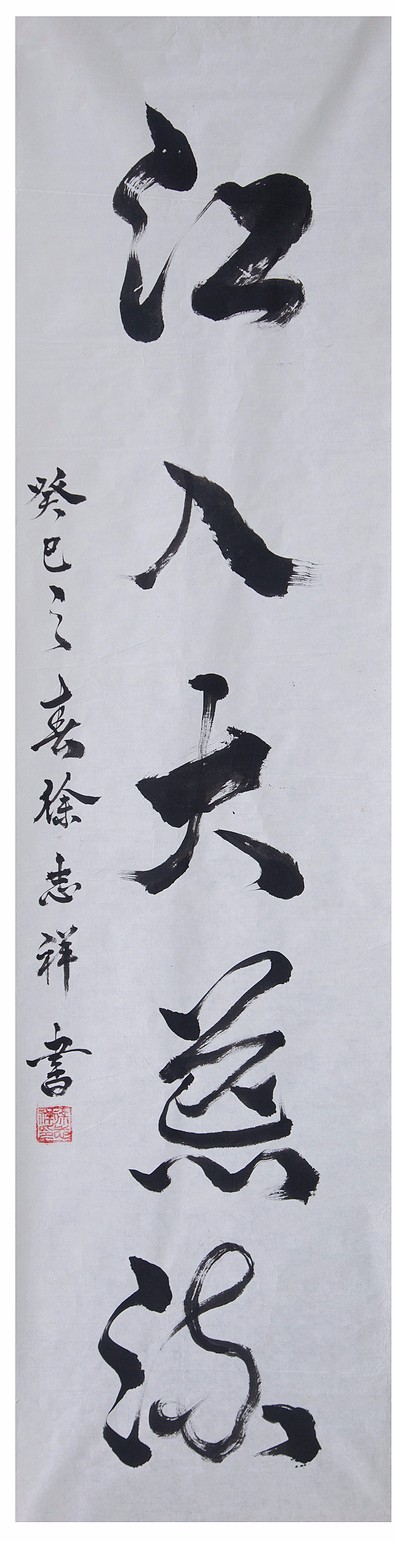 江入大荒流
癸巳之春徐志祥書